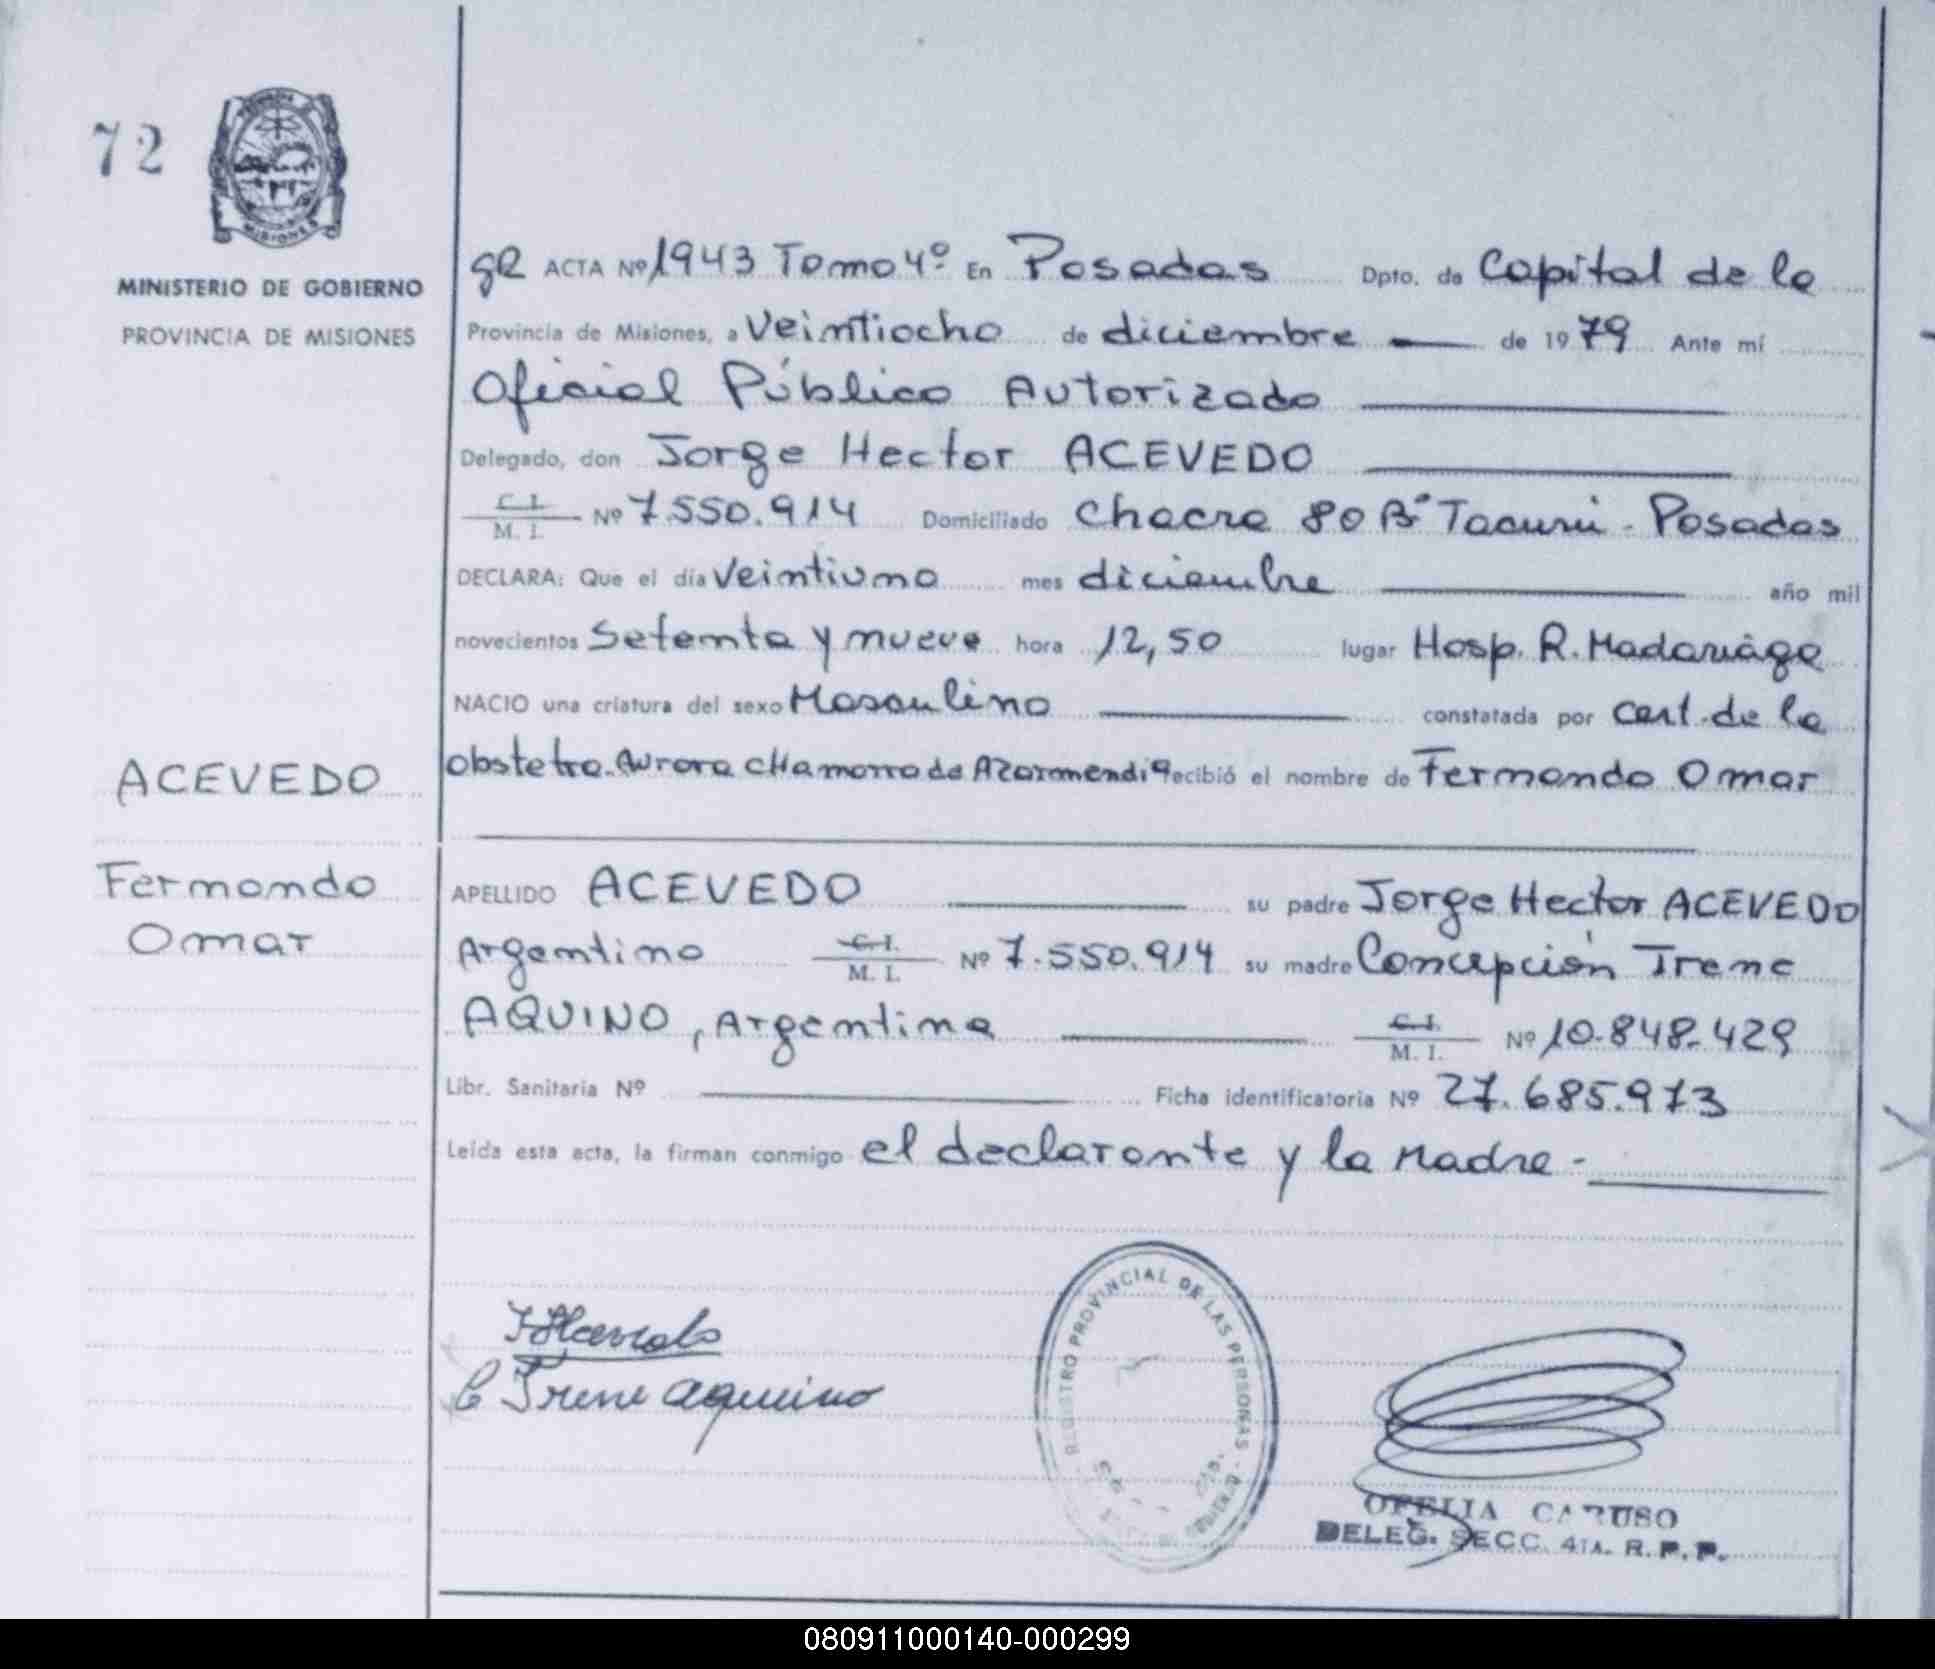 72
MISIONES
MINISTERIO DE GOBIERNO
PROVINCIA DE MISIONES
gR ACTA Nº 1943 Tomo 4º En Posadas Dpto. de Capital de la
Provincia de Misiones, a Veintiocho de diciembre — de 1979 Ante mí
Oficial Público Autorizado
Delegado, don Jorge Hector ACEVEDO
C. I.
M. I. Nº 7.550.914 Domiciliado Chacra 80 Bº Tacurú - Posadas
DECLARA: Que el día Veintiuno mes diciembre año mil
novecientos Setenta y nueve hora 12,50 lugar Hosp. R. Madariaga
NACIO una criatura del sexo Masculino constatada por cert. de la
obstetra. Aurora Chamorro de Azarmendi recibió el nombre de Fernando Omar
ACEVEDO
Fernando
Omar
APELLIDO ACEVEDO su padre Jorge Hector ACEVEDO
Argentino C. I.
M. I. Nº 7.550.914 su madre Concepción Irene
AQUINO, Argentina C. I.
M. I. Nº 10.848.429
Libr. Sanitaria Nº Ficha identificatoria Nº 27.685.973
Leída esta acta, la firman conmigo el declarante y la Madre -
C Irene Aquino
REGISTRO PROVINCIAL DE LAS PERSONAS
OFELIA CARUSO
DELEG. SECC. 4TA. R. P. P.
080911000140-000299